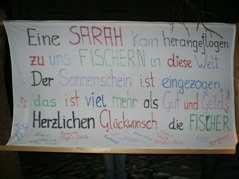 Eine SARAH kam herangeflogen
zu uns FISCHERN in diese Welt
Der Sonnenschein ist eingezogen,
das ist viel mehr als Gut und Geld
Herzlichen Glückwunsch die FISCHER